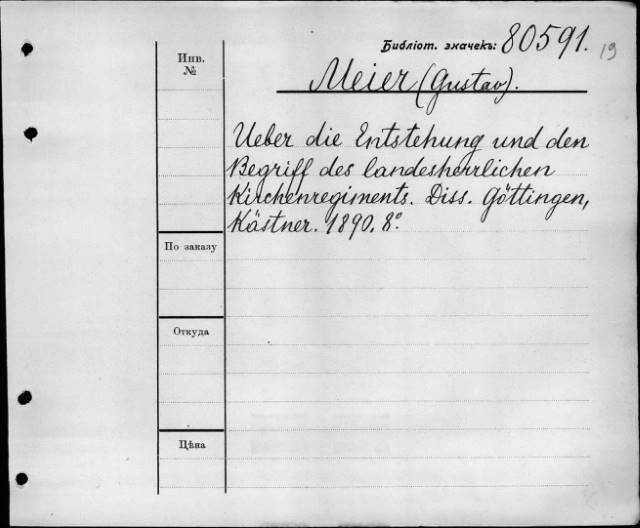 Библіот. значекъ: 80591. 19
Инв. №
Meier (Gustav).
Ueber die Entstehung und den
Begriff des landesherrlichen
Kirchenregiments. Diss. Göttingen,
Kästner. 1890. 8°.
По заказу
Откуда
Цѣна